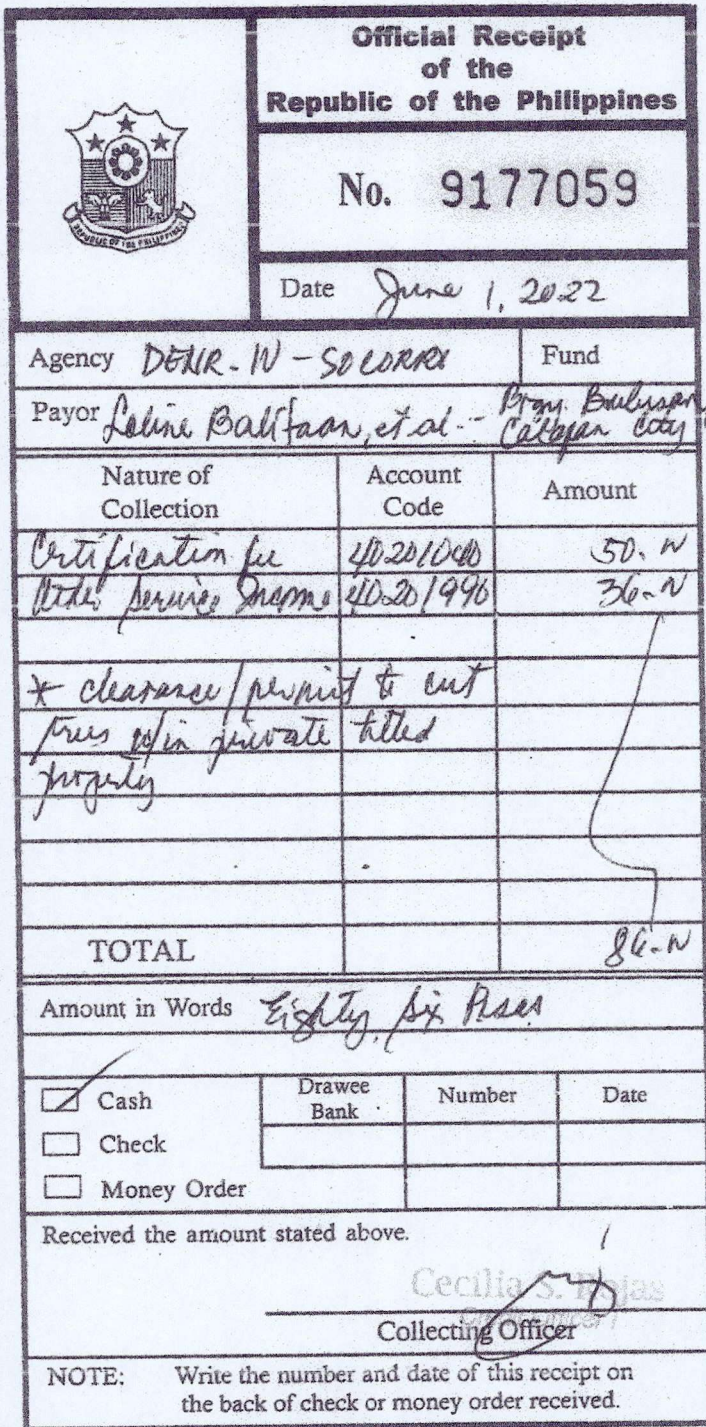 Official Receipt
of the
Republic of the Philippines
REPUBLIC OF THE PHILIPPINES
No. 9177059
Date June 1, 2022
Agency DENR-IV - SOCORRO Fund
Payor Baliton, et al. - Brgy.
Calapan City
Nature of Collection Account Code Amount
Certification fee 40201040 50.
Other Service Income 40201990 36.
* clearance/permit to cut
trees w/in private titled
property
TOTAL 86.
Amount in Words Eighty Six Pesos
Cash Drawee Bank Number Date
Check
Money Order
Received the amount stated above.
Cecilia S. Rojas
Collecting Officer
NOTE: Write the number and date of this receipt on
the back of check or money order received.